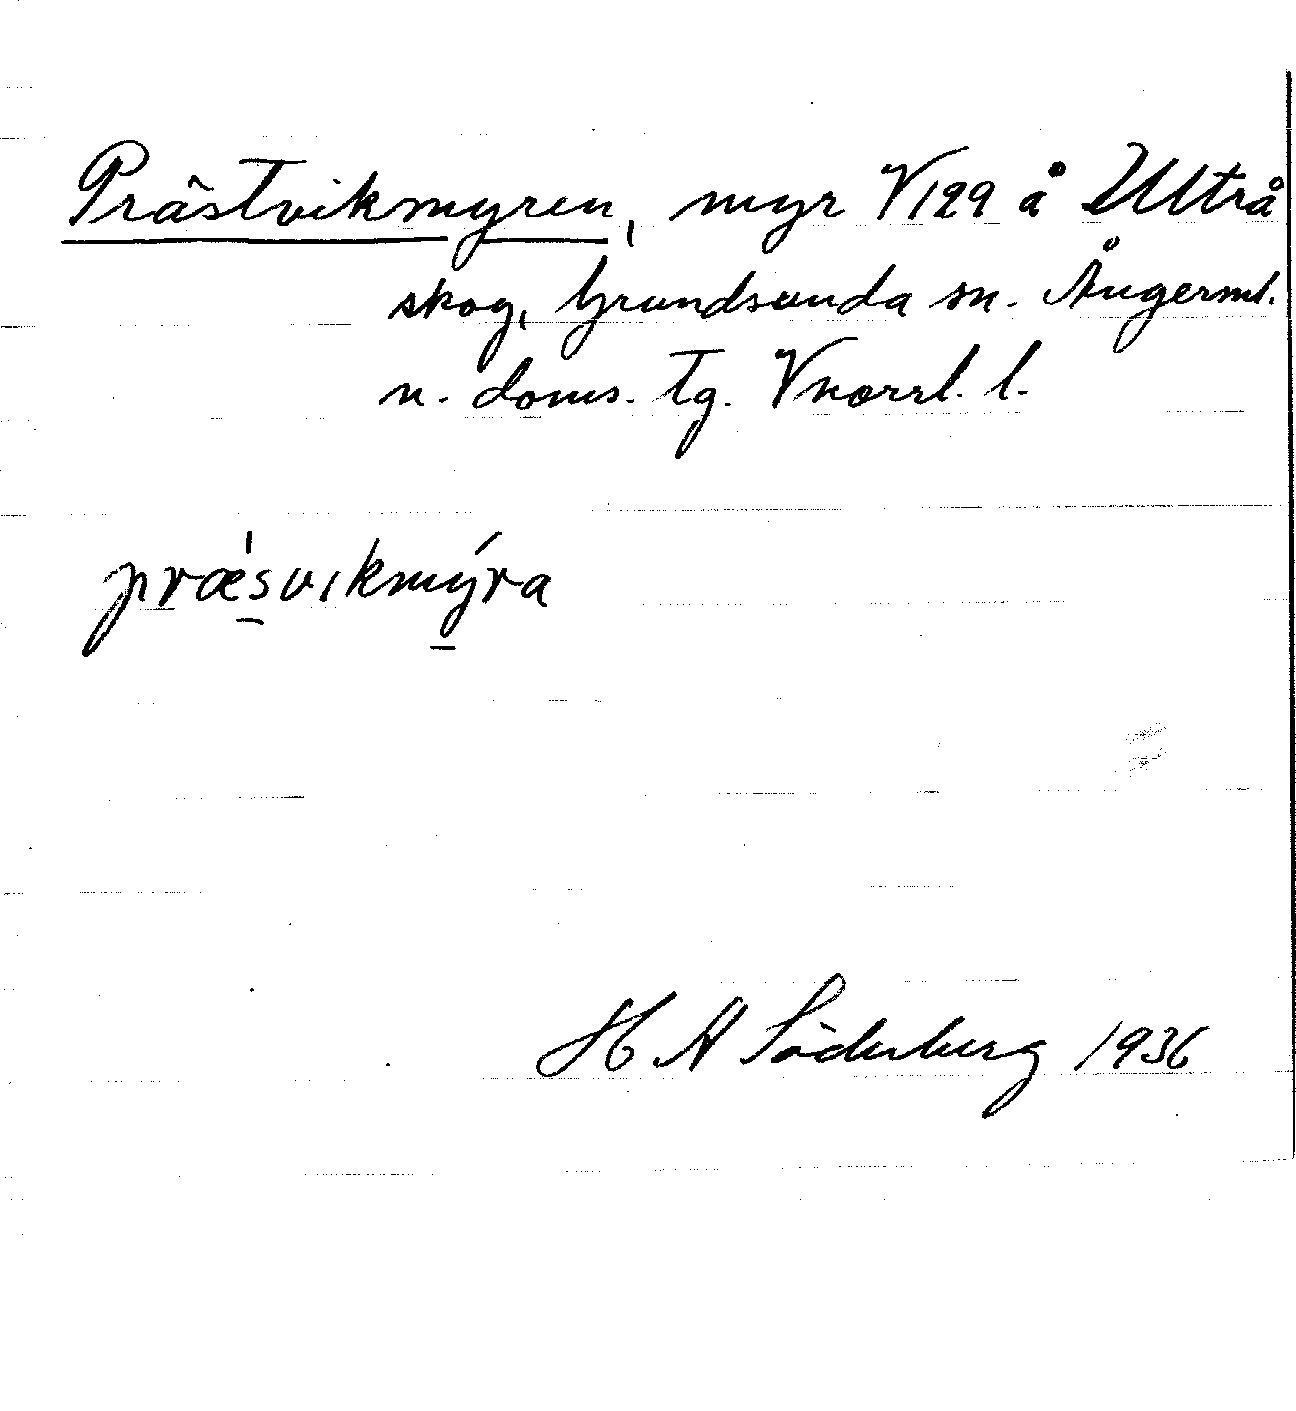 Prästvikmyren, myr V129 å Ultrå
skog, Grundsunda sn. Ångerml.
n. doms. tg. Vnorrl. l.
prǽ̱svikmý̱ra
H A Söderberg 1936